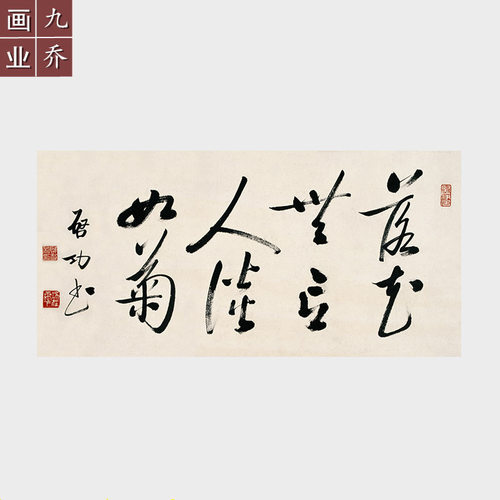 九乔
画业
落花
無言
人淡
如菊
启功书